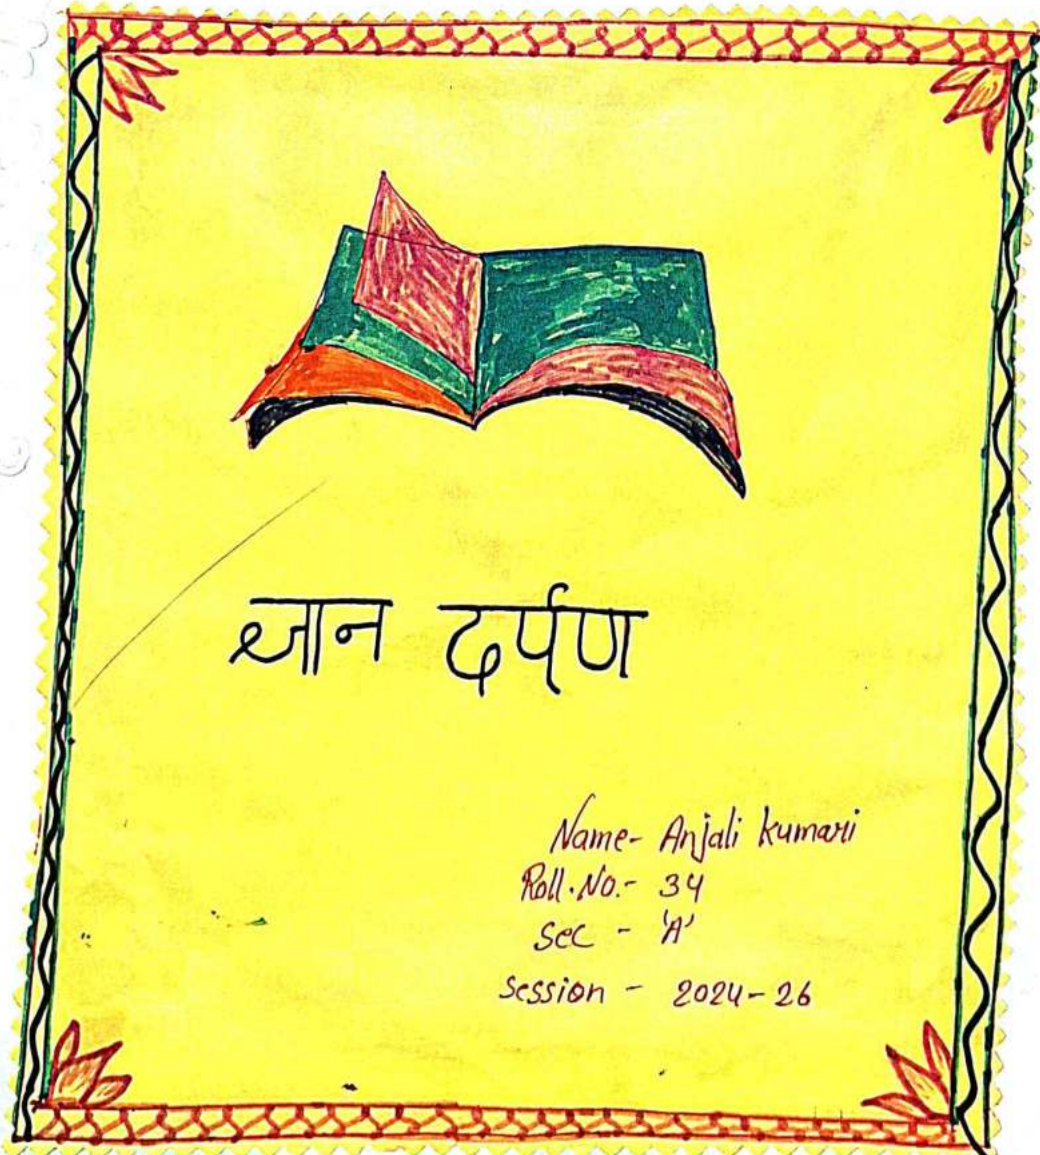 ज्ञान दर्पण
Name- Anjali kumari
Roll.No.- 34
Sec - 'A'
Session - 2024-26